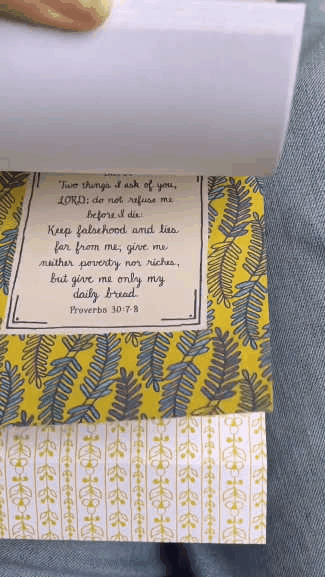 Two things I ask of you,
LORD; do not refuse me
before I die:
Keep falsehood and lies
far from me; give me
neither poverty nor riches,
but give me only my
daily bread.
Proverbs 30:7-8